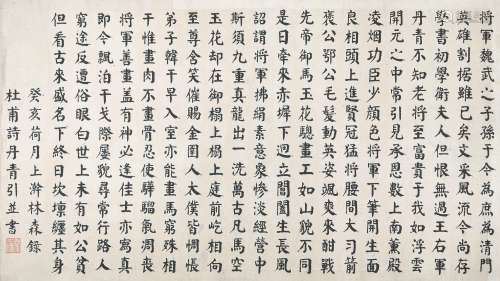 將軍魏武之子孫于今為庶為清門
英雄割據雖已矣文采風流今尚存
學書初學衛夫人但恨無過王右軍
丹青不知老將至富貴于我如浮雲
開元之中常引見承恩數上南薰殿
凌烟功臣少顏色將軍下筆開生面
良相頭上進賢冠猛將腰間大羽箭
褒公鄂公毛髮動英姿颯爽來酣戰
先帝御馬玉花驄畫工如山貌不同
是日牽來赤墀下迥立閶闔生長風
詔謂將軍拂絹素意象慘淡經營中
斯須九重真龍出一洗萬古凡馬空
玉花却在御榻上榻上庭前屹相向
至尊含笑催賜金圉人太僕皆惆悵
弟子韓干早入室亦能畫馬窮殊相
干惟畫肉不畫骨忍使驊騮氣凋喪
將軍善畫蓋有神必逢佳士亦寫真
即今飄泊干戈際屢貌尋常行路人
窮途反遭俗眼白世上未有如公貧
但看古來盛名下終日坎壈纏其身
癸亥荷月上澣林森錄
杜甫詩丹青引並書